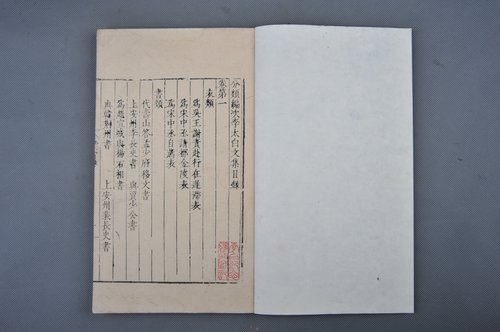 分類編次李太白文集目録
卷第一
表類
為吳王謝責赴行在遲滯表
為宋中丞請都金陵表
為宋中丞自薦表
書類
代壽山答孟少府移文書
上安州李長史書
與賈少公書
為趙宣城與楊右相書
與韓荊州書
上安州裴長史書